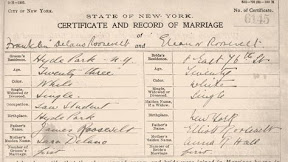 STATE OF NEW YORK.
CITY OF NEW YORK. No. of Certificate,
CERTIFICATE AND RECORD OF MARRIAGE 6145
OF
Franklin Delano Roosevelt and Eleanor Roosevelt
Groom's Residence, Hyde Park N.Y. Bride's Residence, East 76th St
Age, Twenty three Age, Twenty
Color, White Color, White
Single Single
Occupation, Law Student
Birthplace, Hyde Park Birthplace, New York
Father's Name, James Roosevelt Father's Name, Elliott Roosevelt
Mother's Maiden Name, Sara Delano Mother's Maiden Name, Anna Hall
first first